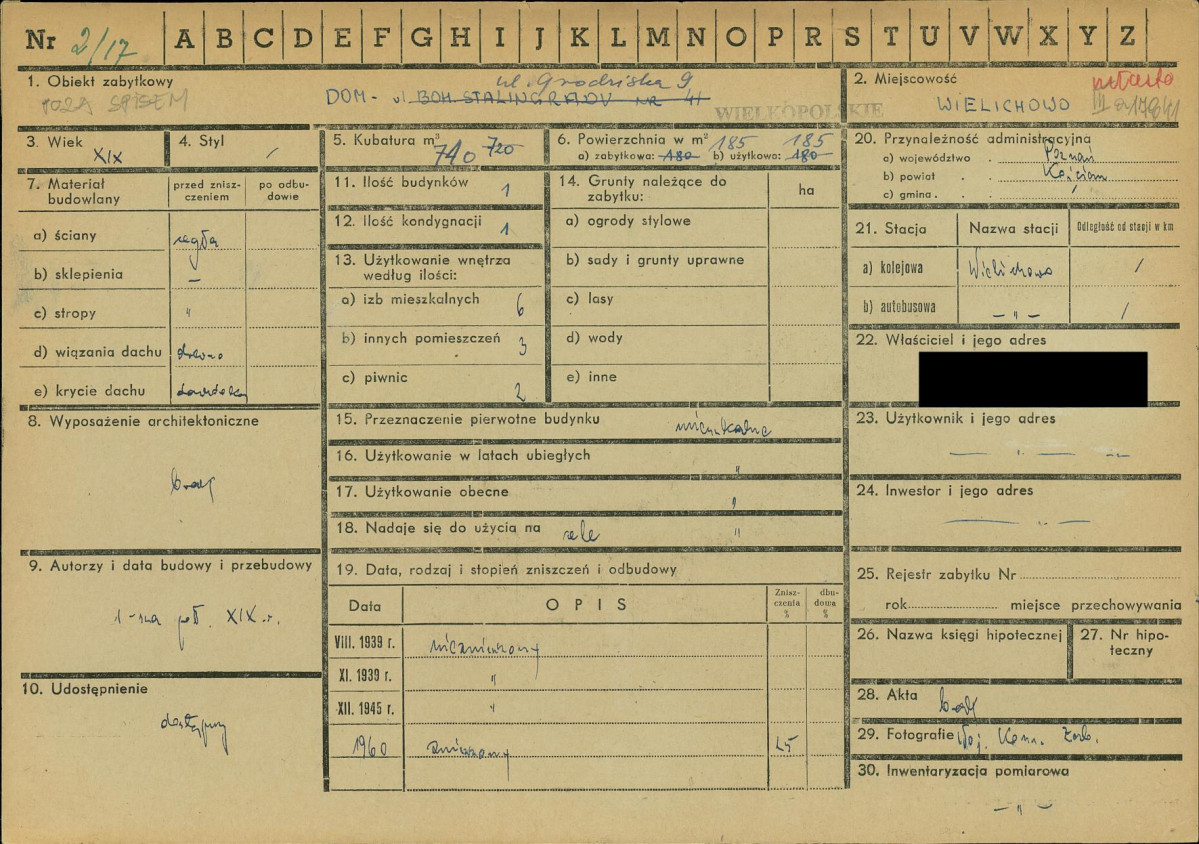 Nr 2/17 A B C D E F G H I J K L M N O P R S T U V W X Y Z
1. Obiekt zabytkowy
POZA SPISEM
ul. Grodziska 9
DOM - ul BOH. STALINGRADU NR 41
WIELKOPOLSKIE
2. Miejscowość
miasto
WIELICHOWO
3. Wiek XIX
4. Styl /
5. Kubatura m³ 740 720
6. Powierzchnia w m² 185 185
a) zabytkowa: 180 b) użytkowa: 180
20. Przynależność administracyjna
a) województwo . Poznań
b) powiat . . Kościan
c) gmina . . /
7. Materiał budowlany
przed zniszczeniem
po odbudowie
a) ściany cegła
b) sklepienia —
c) stropy "
d) wiązania dachu drewno
e) krycie dachu dachówka
11. Ilość budynków 1
12. Ilość kondygnacji 1
13. Użytkowanie wnętrza
według ilości:
a) izb mieszkalnych 6
b) innych pomieszczeń 3
c) piwnic 2
14. Grunty należące do
zabytku:
ha
a) ogrody stylowe
b) sady i grunty uprawne
c) lasy
d) wody
e) inne
21. Stacja Nazwa stacji Odległość od stacji w km
a) kolejowa Wielichowo /
b) autobusowa — " — /
22. Właściciel i jego adres
8. Wyposażenie architektoniczne
brak
15. Przeznaczenie pierwotne budynku mieszkalne
16. Użytkowanie w latach ubiegłych "
17. Użytkowanie obecne "
18. Nadaje się do użycia na cele "
23. Użytkownik i jego adres
— " — " —
24. Inwestor i jego adres
— " —
9. Autorzy i data budowy i przebudowy
1-sza poł. XIX w.
10. Udostępnienie
dostępny
19. Data, rodzaj i stopień zniszczeń i odbudowy
Data OPIS Zniszczenia % dbudowa %
VIII. 1939 r. niezniszczony
XI. 1939 r. "
XII. 1945 r. "
1960 zniszczony 25
25. Rejestr zabytku Nr
rok miejsce przechowywania
26. Nazwa księgi hipotecznej
27. Nr hipoteczny
28. Akta brak
29. Fotografie Woj. Kons. Zab.
30. Inwentaryzacja pomiarowa
— " —